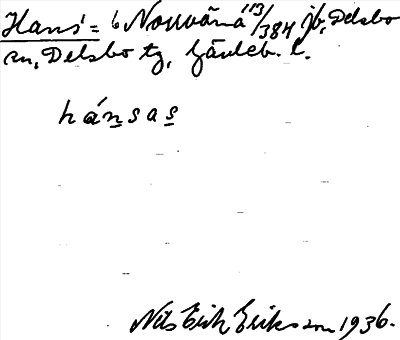 Hans' = 6 Norrväna 113/384 jb, Delsbo
sn, Delsbo tg, Gävleb. l.
hánsas
Nils Erik Eriksson 1936.